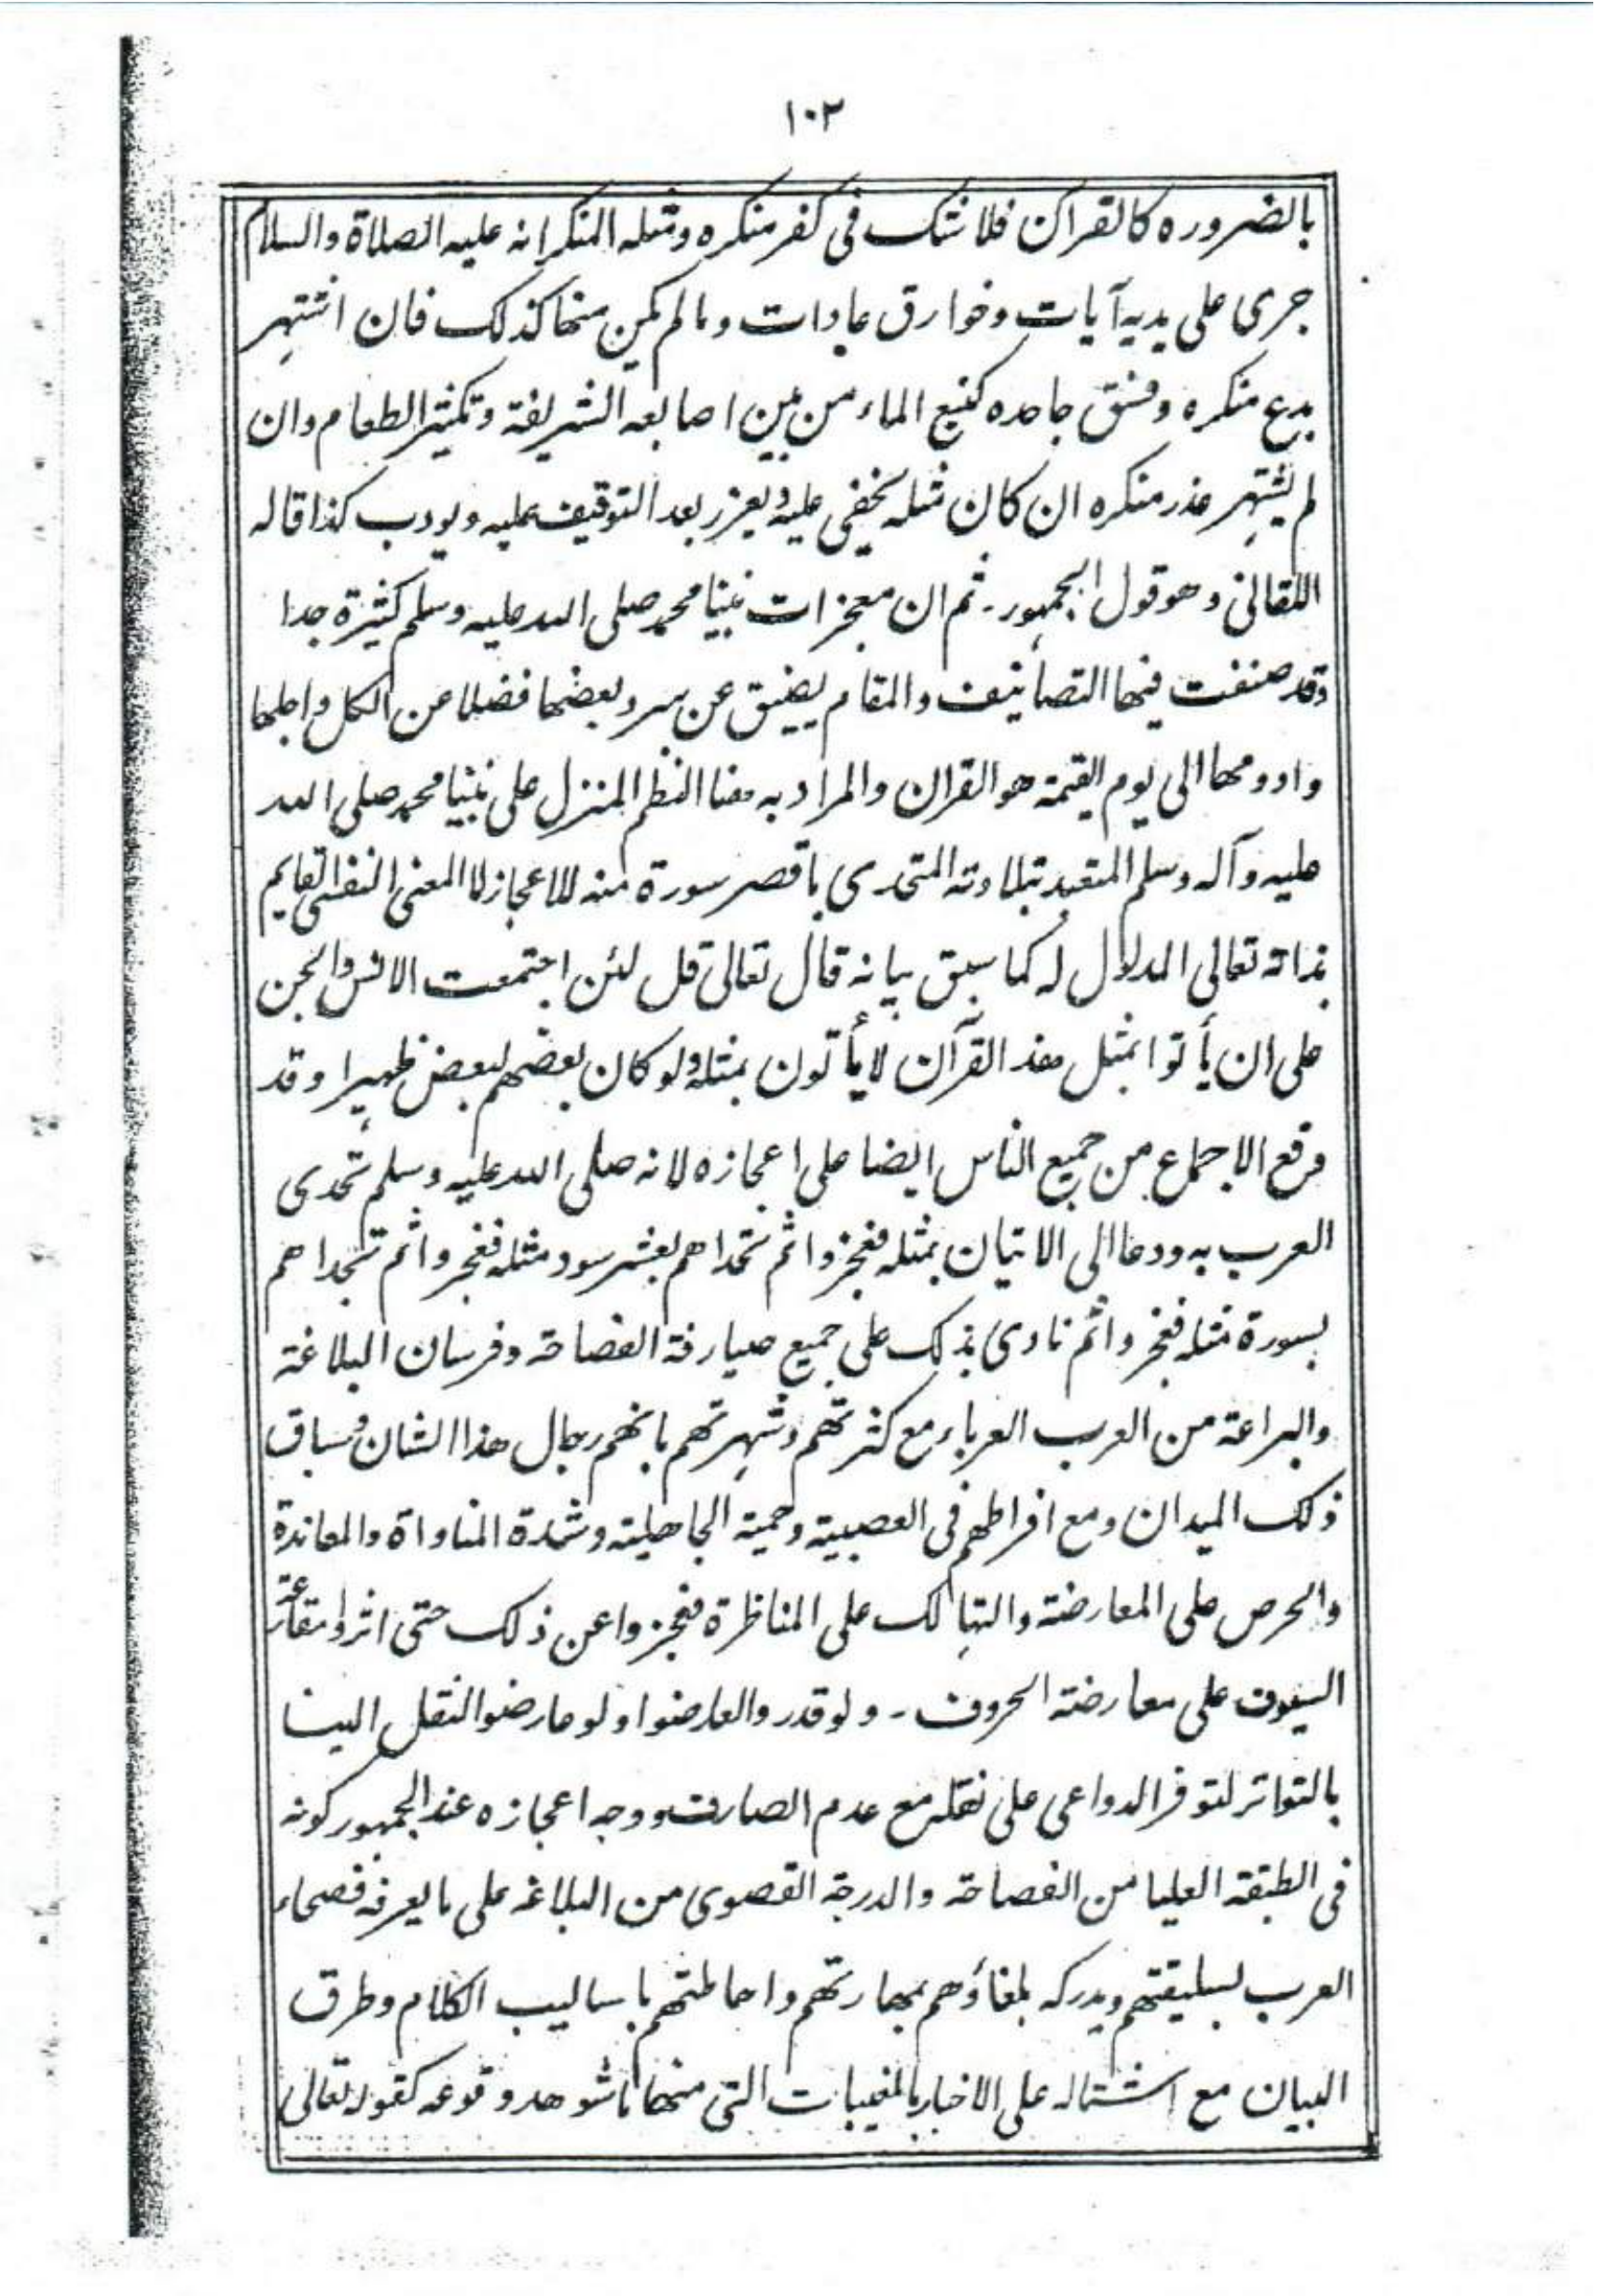 ١٠٢
بالضروره كالقرآن فلا نشك في كفر منكره ومثله المنكر انه عليه الصلاة والسلام
جرى على يديه آيات وخوارق عادات وما لم يكن منها كذلك فان اشتهر
بدع منكره وفسق جاحده كنبع الماء من بين اصابعه الشريفة وتكثير الطعام وان
لم يشتهر عذر منكره ان كان مثله يخفى عليه ويعزر بعد التوقيف عليه ويودب كذا قاله
اللقاني وهو قول الجمهور - ثم ان معجزات نبينا محمد صلى الله عليه وسلم كثيرة جدا
وقد صنفت فيها التصانيف والمقام يضيق عن سرد بعضها فضلا عن الكل واجلها
وادومها الى يوم القيمة هو القران والمراد به هنا النظم المنزل على نبينا محمد صلى الله
عليه وآله وسلم المتعبد بتلاوته المتحدى باقصر سورة منه للاعجاز لا المعنى النفسي القايم
بذاته تعالى المدلول له كما سبق بيانه قال تعالى قل لئن اجتمعت الانس والجن
على ان يأتوا بمثل هذا القرآن لا يأتون بمثله ولو كان بعضهم لبعض ظهيرا وقد
وقع الاجماع من جميع الناس ايضا على اعجازه لانه صلى الله عليه وسلم تحدى
العرب به ودعا الى الاتيان بمثله فعجزوا ثم تحداهم بعشر سور مثله فعجزوا ثم تحداهم
بسورة مثله فعجزوا ثم نادى بذلك على جميع صيارفة الفصاحة وفرسان البلاغة
والبراعة من العرب العرباء مع كثرتهم وشهرتهم بانهم رجال هذا الشان وسباق
ذلك الميدان ومع افراطهم في العصبية وحمية الجاهلية وشدة المناواة والمعاندة
والحرص على المعارضة والتهالك على المناظرة فعجزوا عن ذلك حتى اثروا مقارعة
السيوف على معارضة الحروف - ولو قدروا لعارضوا ولو عارضوا لنقل الينا
بالتواتر لتوفر الدواعي على نقله مع عدم الصارف ووجه اعجازه عند الجمهور كونه
في الطبقة العليا من الفصاحة والدرجة القصوى من البلاغة على ما يعرفه فصحاء
العرب بسليقتهم ويدركه بلغاؤهم بمهارتهم واحاطتهم باساليب الكلام وطرق
البيان مع اشتماله على الاخبار بالمغيبات التي منها ما شوهد وقوعه كقوله تعالى